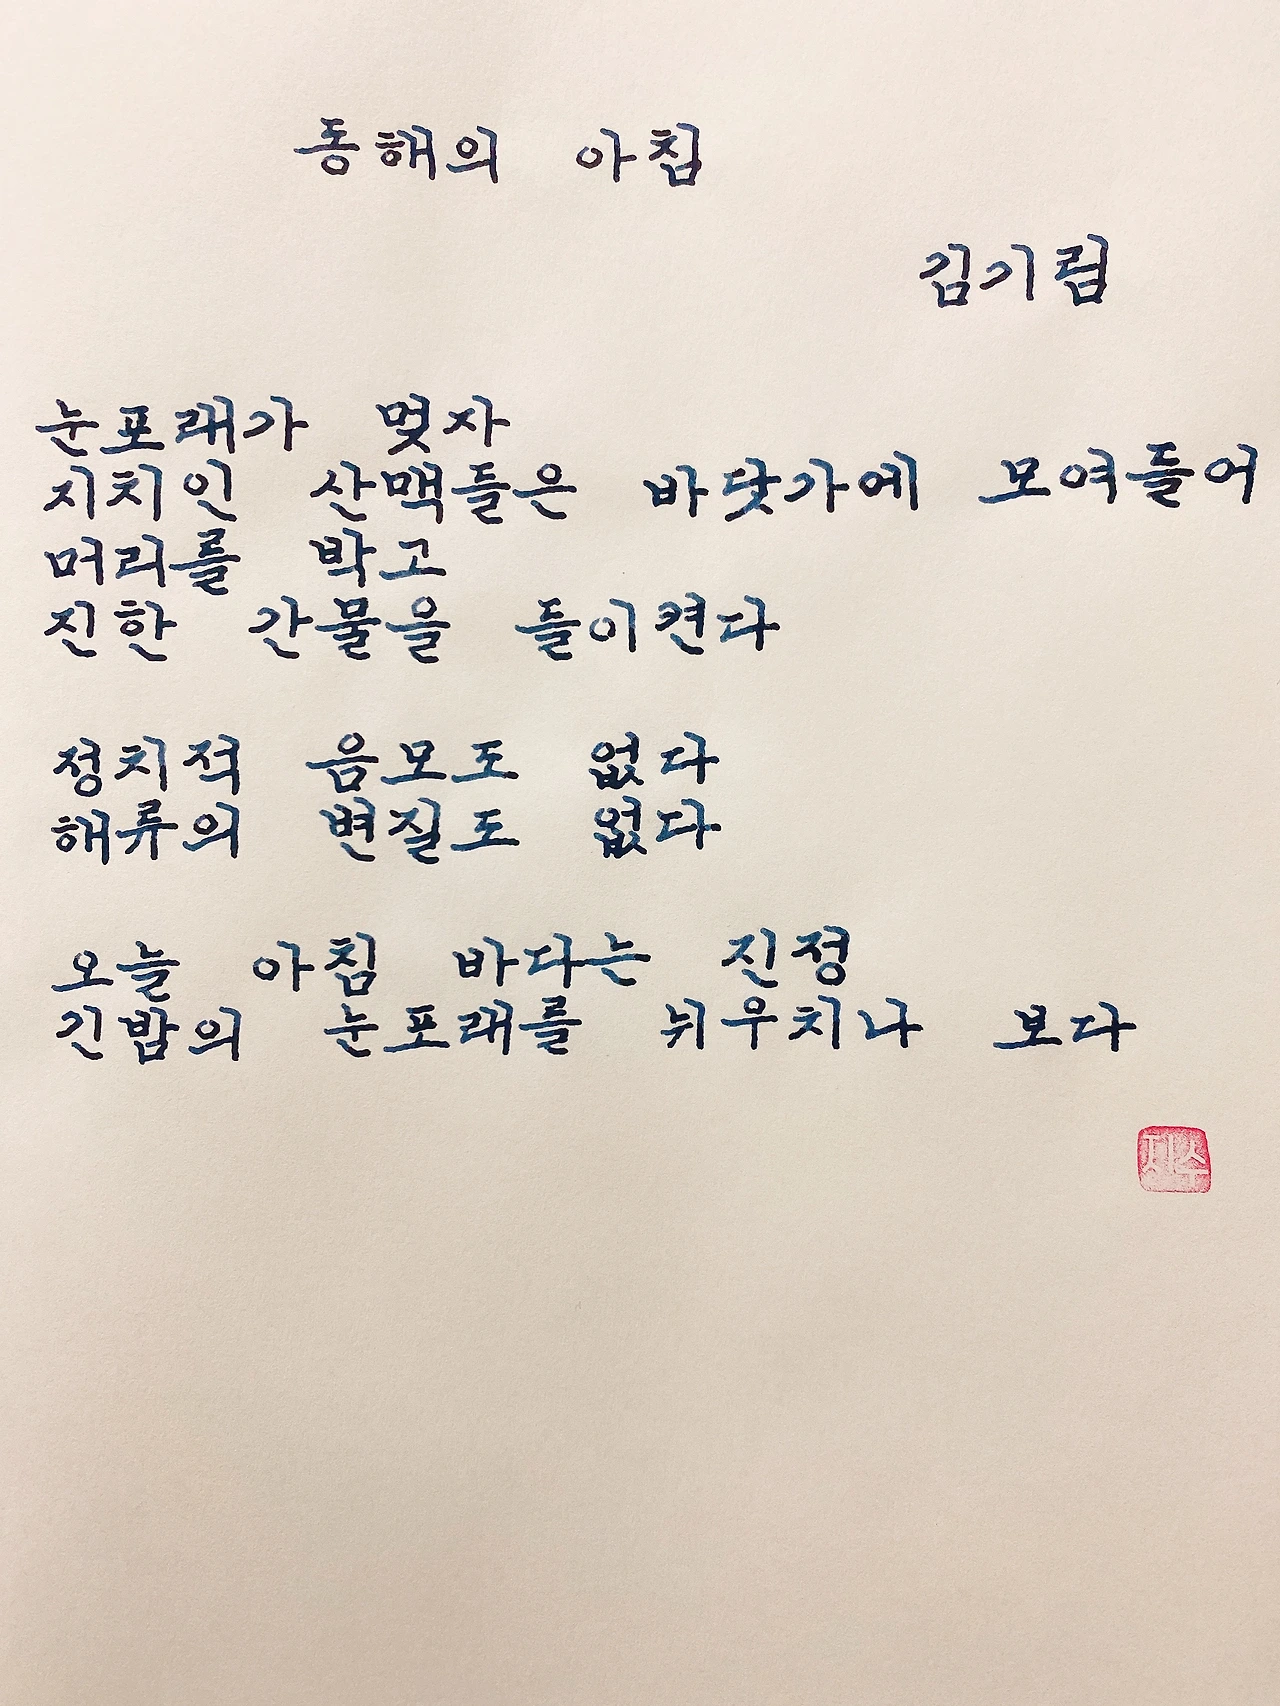 동해의 아침
김기림
눈포래가 멎자
지치인 산맥들은 바닷가에 모여들어
머리를 박고
진한 간물을 들이켠다
정치적 음모도 없다
해류의 변질도 없다
오늘 아침 바다는 진정
긴밤의 눈포래를 뉘우치나 보다
지수